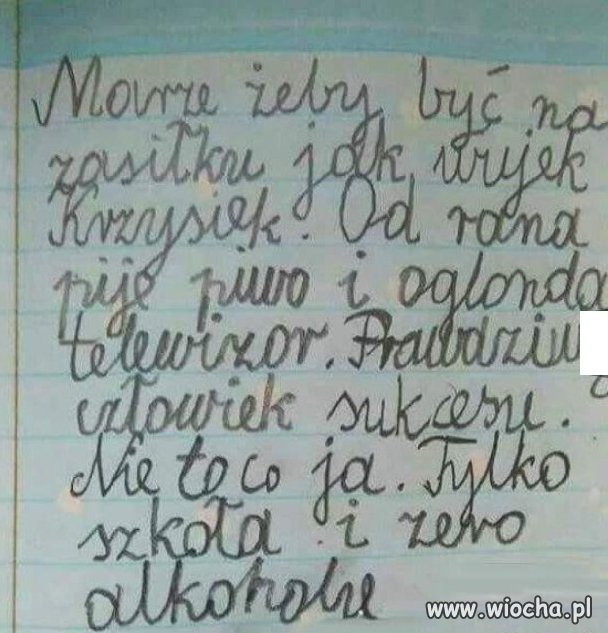 Marze żeby być na
zasiłku jak wujek
Krzysiek. Od rana
pije piwo i oglonda
telewizor. Prawdziw
człowiek sukcesu.
Nie to co ja. Tylko
szkoła i zero
alkoholu
www.wiocha.pl